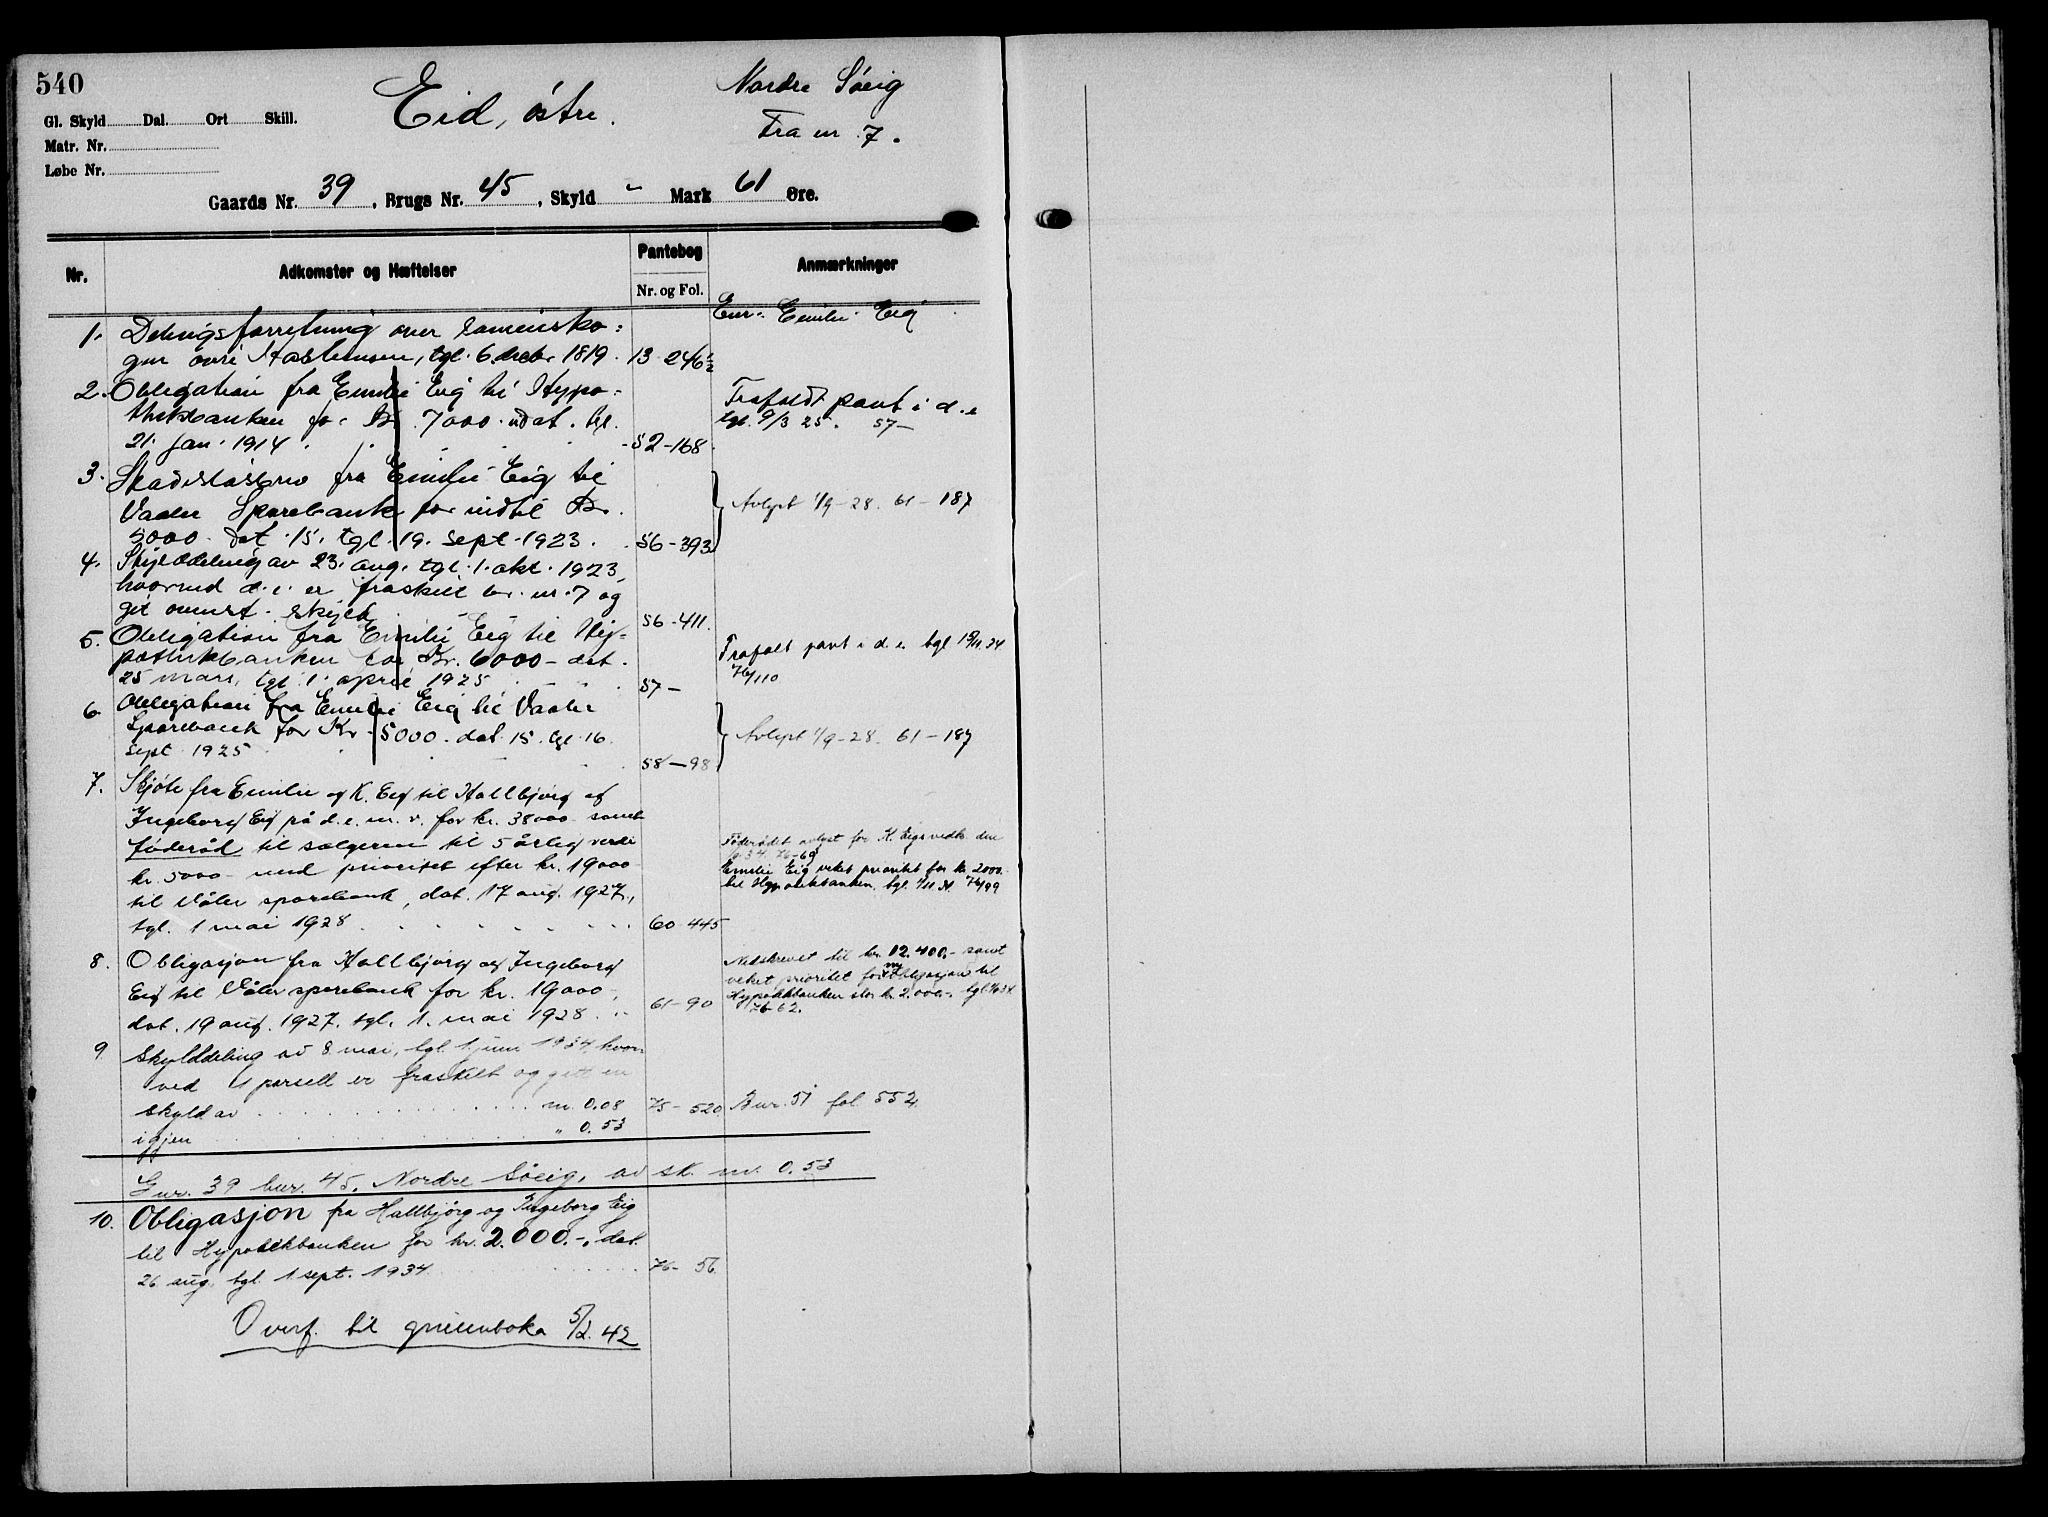 540
Eid, östre.
Nordre Söeig
Fra nr 7.
Gl. Skyld Dal. Ort Skill.
Matr. Nr.
Løbe Nr.
Gaards Nr. 39, Brugs Nr. 45, Skyld - Mark 61 Øre.
Nr.
Adkomster og Hæftelser
Pantebog
Nr. og Fol.
Anmærkninger
Eier. Emilie Eig
1. Delingsforretning over
tgl. 6 decbr 1819. 13-246½
2. Obligation fra Emilie Eig til Hypo-
thekbanken for Kr. 7000. udat. tgl.
21. jan. 1914 52-168.
Frafaldt pant i d.e
tgl. 9/3 25. 57-
3. Skadeslösbrev fra Emilie Eig til
Vaaler Sparebank for indtil Kr.
5000. dat. 15. tgl. 19. sept. 1923. 56-393
Avlyst 1/9-28. 61-187
4. Skylddeling av 23. aug. tgl. 1. okt. 1923,
hvorved d.e. er fraskilt br. nr. 7 og
git ovennt. skyld 56-411.
5. Obligation fra Emilie Eig til Hy-
pothekbanken for Kr. 6000- dat.
25 mars, tgl. 1. april 1925 57-
Frafalt pant i d.e. tgl 15/11.34
76/110
6. Obligation fra Emilie Eig til Vaaler
Sparebank for Kr. 5000. dat. 15. tgl. 16.
sept 1925 58-98
Avlyst 1/9-28. 61-187
7. Skjöte fra Emilie og K. Eig til Hallbjörg og
Ingeborg Eig på d.e. m. v. for kr. 38000 samt
föderåd til sælgerne til 5 årlig verdi
kr. 5000 - med prioritet efter kr. 19000
til Våler sparebank, dat. 17 aug. 1927,
tgl. 1 mai 1928 60-445
Föderådet avlyst for K. Eigs vedk. den
34. 76-69
Emilie Eig veket prioritet for kr. 2000.-
til Hypotekbanken. tgl. 1/11.34. 76/99
8. Obligasjon fra Hallbjörg og Ingeborg
Eig til Våler sparebank for kr. 19000-,
dat. 19 aug. 1927. tgl. 1. mai 1928. 61-90
Nedskrevet til kr. 12.400.- samt
veket prioritet for ny obligasjon til
Hypotekbanken stor kr. 2.000.-
76-62.
9 Skylddeling av 8. mai, tgl. 1 juni 1934, hvor-
ved 1 parsell er fraskilt og gitt en
skyld av m. 0.08 75-520 Bnr. 51 fol 552.
igjen " 0.53
Gnr. 39 bnr. 45. Nordre Söeig, av sk. m. 0.53
10. Obligasjon fra Hallbjörg og Ingeborg Eig
til Hypotekbanken for kr. 2.000.-, dat.
26 aug. tgl. 1 sept. 1934. 76-56
Overf. til grunnboka 5/2.42